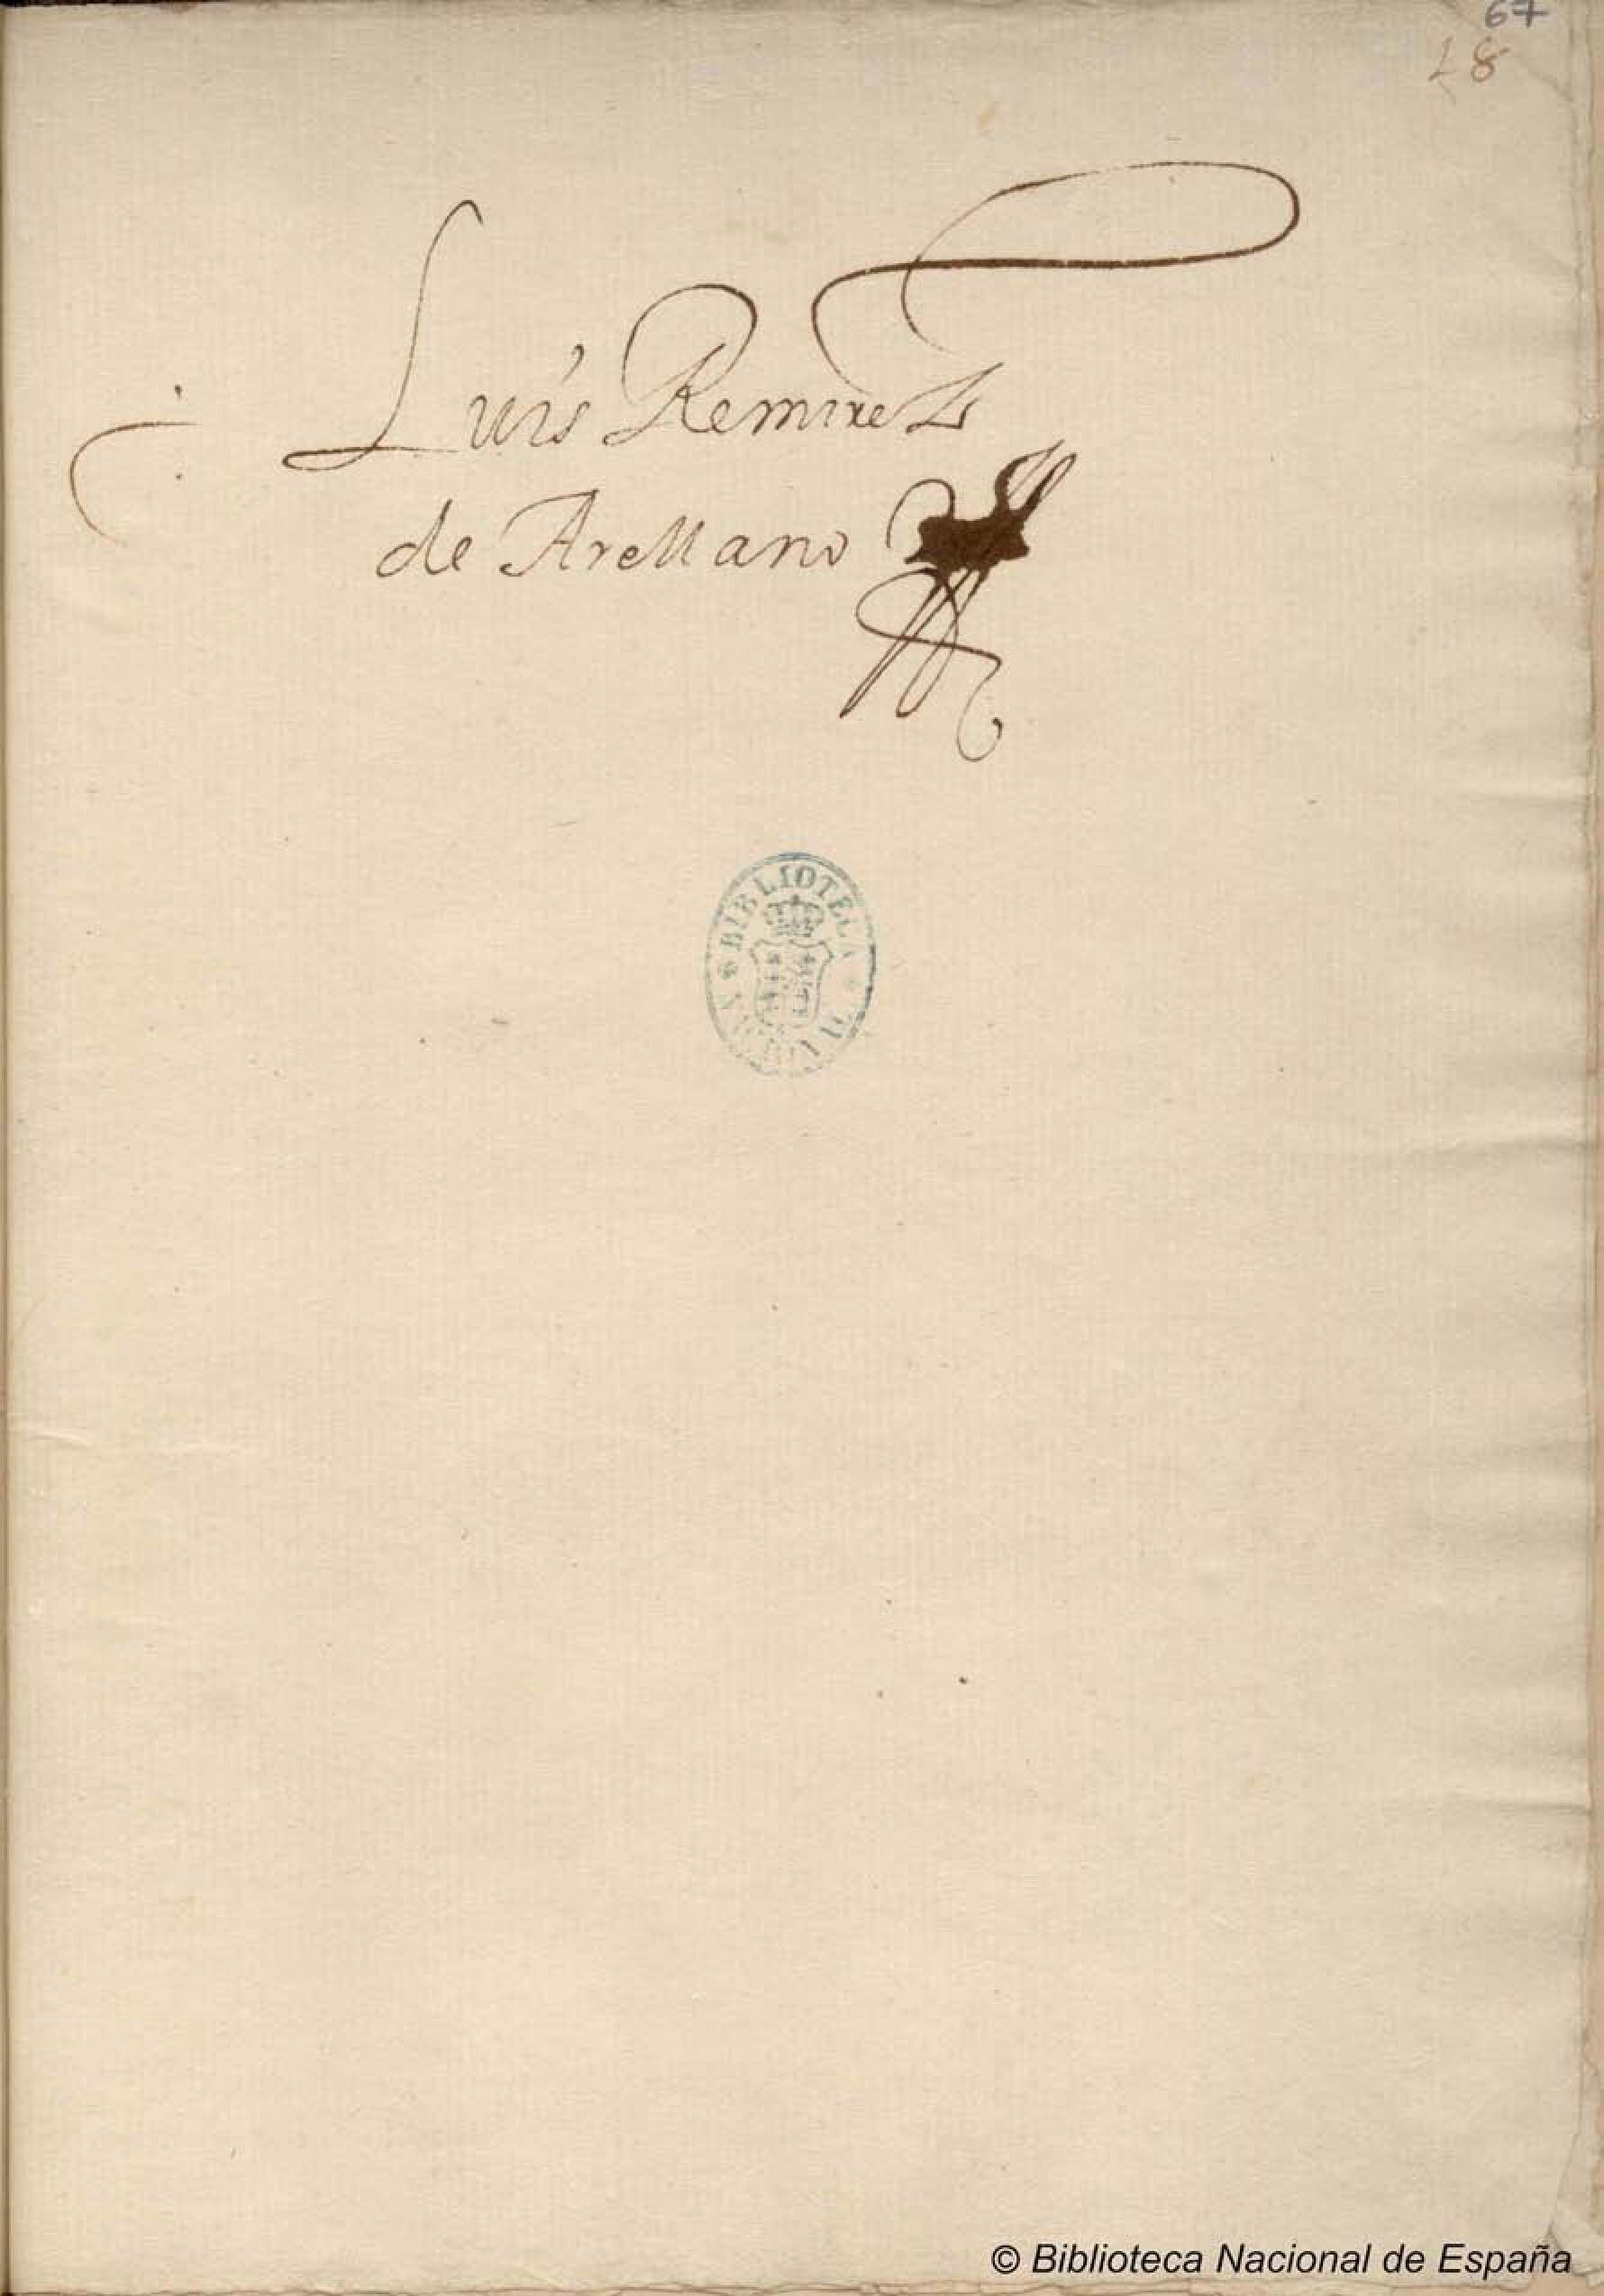 67
28
Luis Remirez
de Arellano
BIBLIOTECA
© Biblioteca Nacional de España